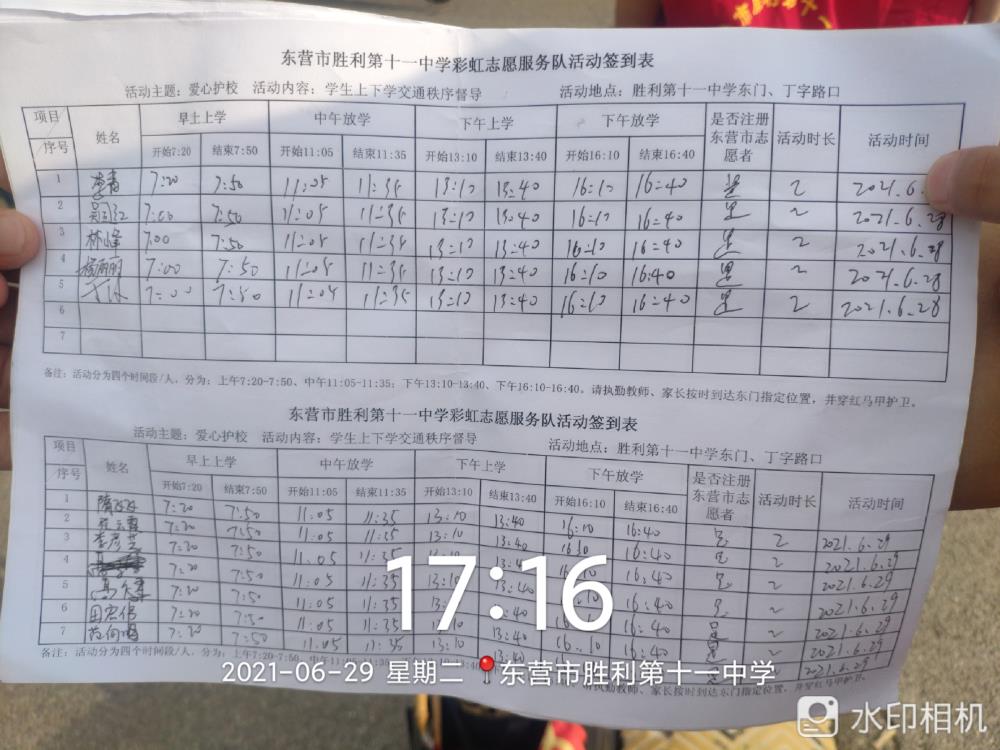 东营市胜利第十一中学彩虹志愿服务队活动签到表
活动主题：爱心护校 活动内容：学生上下学交通秩序督导 活动地点：胜利第十一中学东门、丁字路口
项目 序号 姓名 早上上学 中午放学 下午上学 下午放学 是否注册东营市志愿者 活动时长 活动时间
开始7:20 结束7:50 开始11:05 结束11:35 开始13:10 结束13:40 开始16:10 结束16:40
1 7:20 7:50 11:05 11:35 13:10 13:40 16:10 16:40 是 2 2021.6.
2 7:00 7:50 11:05 11:35 13:10 13:40 16:10 16:40 是 2 2021.6.28
3 林峰 7:00 7:50 11:05 11:35 13:10 13:40 16:10 16:40 是 2 2021.6.28
4 杨丽丽 7:00 7:50 11:05 11:35 13:10 13:40 16:10 16:40 是 2 2021.6.28
5 7:00 7:50 11:05 11:35 13:10 13:40 16:10 16:40 是 2 2021.6.28
6
7
备注：活动分为四个时间段/人，分为：上午7:20-7:50、中午11:05-11:35；下午13:10-13:40、下午16:10-16:40。请执勤教师、家长按时到达东门指定位置，并穿红马甲护卫。
东营市胜利第十一中学彩虹志愿服务队活动签到表
活动主题：爱心护校 活动内容：学生上下学交通秩序督导 活动地点：胜利第十一中学东门、丁字路口
项目 序号 姓名 早上上学 中午放学 下午上学 下午放学 是否注册东营市志愿者 活动时长 活动时间
开始7:20 结束7:50 开始11:05 结束11:35 开始13:10 结束13:40 开始16:10 结束16:40
1 7:20 7:50 11:05 11:35 13:10 13:40 16:10 16:40 是 2 2021.6.29
2 7:20 7:50 11:05 11:35 13:10 13:40 16:10 16:40 是 2 2021.6.29
3 李彦芝 7:20 7:50 11:05 11:35 16:40 是 2 2021.6.29
4 7:20 7:50 11:05 16:40 2 2021.6.29
5 7:20 7:50 11:05 11:35 13:10 13:40 16:40 是 2 2021.6.29
6 田宏伟 7:20 7:50 11:05 11:35 16:40 是 2 2021.6.29
7 7:20 7:50 11:05 11:35 13:10 13:40 16:10 16:40 2021.6.29
备注：活动分为四个时间段/人，分为：上午7:20-7:50、 请执勤教师、家长按时到达东门指定位置，并穿红马甲护卫。
17:16
2021-06-29 星期二 东营市胜利第十一中学
水印相机